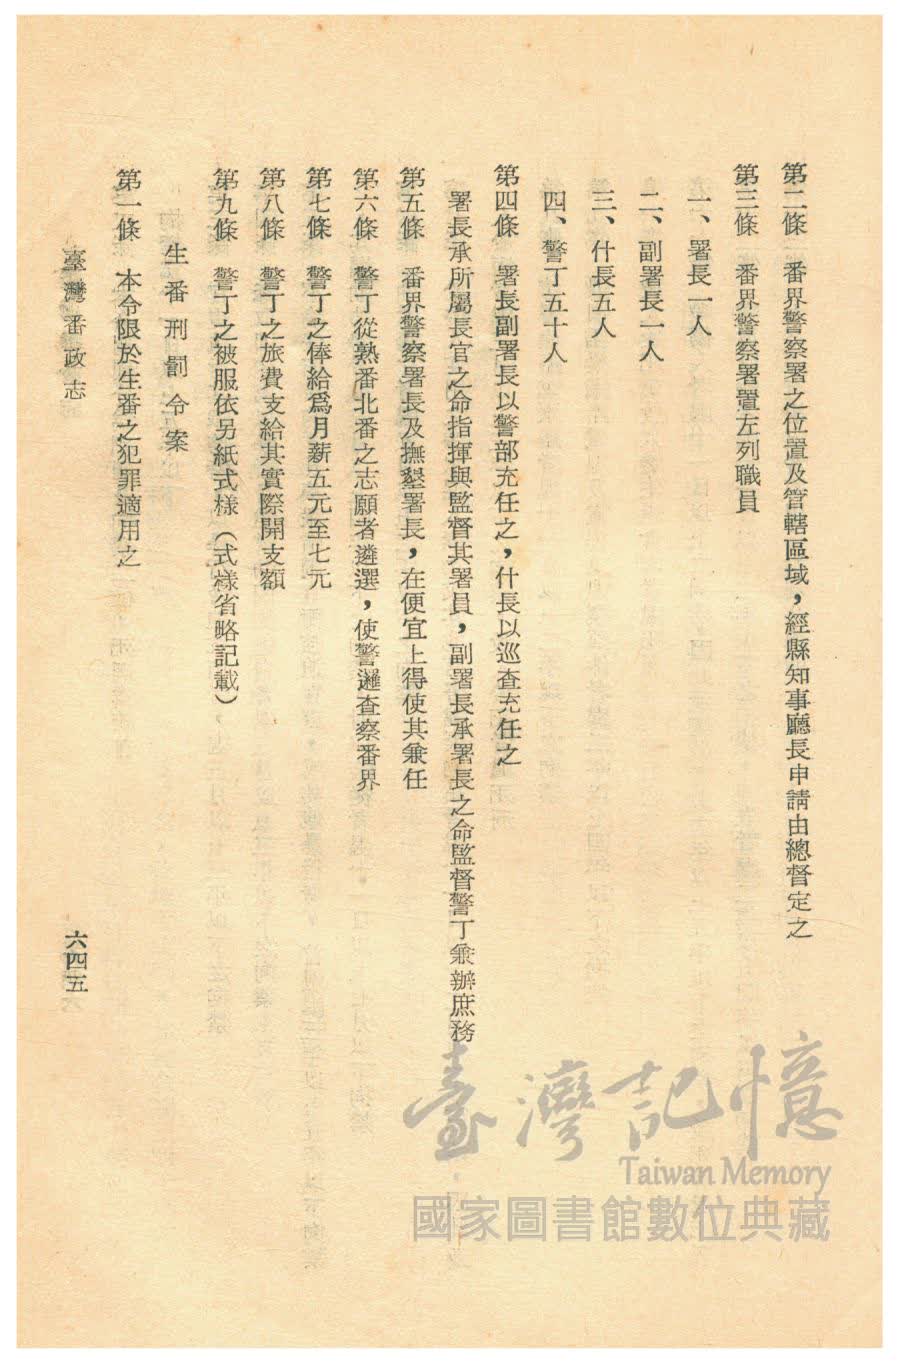 第二條　番界警察署之位置及管轄區域，經縣知事廳長申請由總督定之
第三條　番界警察署置左列職員
一、署長一人
二、副署長一人
三、什長五人
四、警丁五十人
第四條　署長副署長以警部充任之，什長以巡查充任之
署長承所屬長官之命指揮與監督其署員，副署長承署長之命監督警丁兼辦庶務
第五條　番界警察署長及撫墾署長，在便宜上得使其兼任
第六條　警丁從熟番北番之志願者遴選，使警邏查察番界
第七條　警丁之俸給爲月薪五元至七元
第八條　警丁之旅費支給其實際開支額
第九條　警丁之被服依另紙式樣（式樣省略記載）
生番刑罰令案
第一條　本令限於生番之犯罪適用之
臺灣番政志
六四五
臺灣記憶
Taiwan Memory
國家圖書館數位典藏